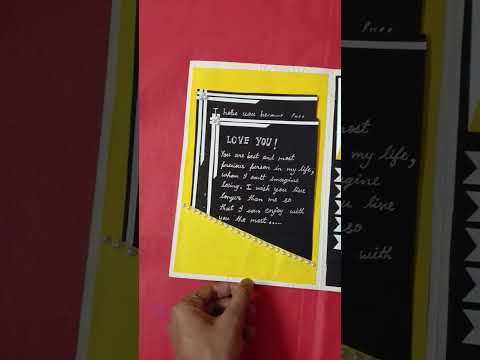 I hate you because I...
LOVE YOU!
You are best and most
precious person in my life,
whom I can't imagine
losing. I wish you live
longer than me so
that I can enjoy with
you the most....